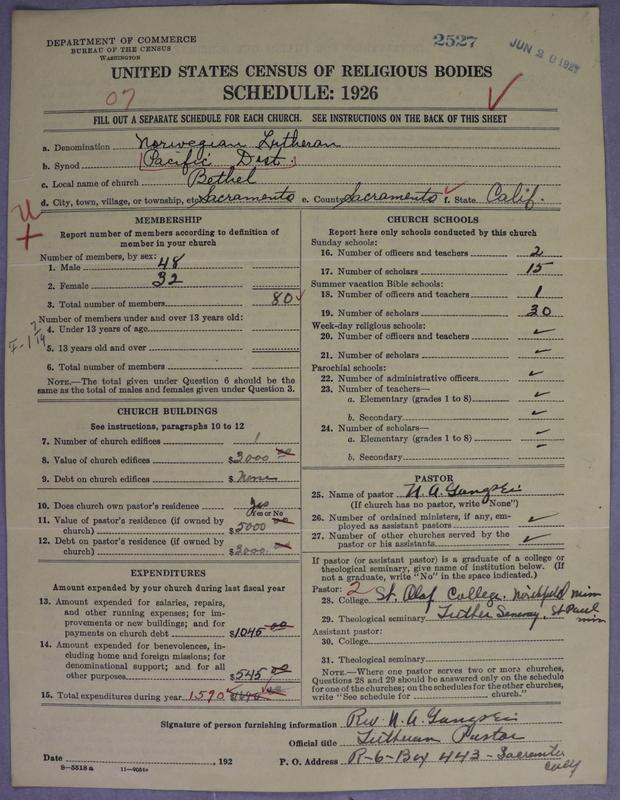 DEPARTMENT OF COMMERCE
BUREAU OF THE CENSUS
WASHINGTON
2527
JUN 20 1927
UNITED STATES CENSUS OF RELIGIOUS BODIES
SCHEDULE: 1926
07
FILL OUT A SEPARATE SCHEDULE FOR EACH CHURCH. SEE INSTRUCTIONS ON THE BACK OF THIS SHEET
a. Denomination Norwegian Lutheran
b. Synod Pacific Dist.
c. Local name of church Bethel
d. City, town, village, or township, etc. Sacramento e. County Sacramento f. State Calif.
MEMBERSHIP
Report number of members according to definition of member in your church
Number of members, by sex:
1. Male 48
2. Female 32
3. Total number of members 80
Number of members under and over 13 years old:
4. Under 13 years of age
5. 13 years old and over
6. Total number of members
NOTE.—The total given under Question 6 should be the
same as the total of males and females given under Question 3.
CHURCH BUILDINGS
See instructions, paragraphs 10 to 12
7. Number of church edifices 1
8. Value of church edifices $3000 00
9. Debt on church edifices $ None
10. Does church own pastor's residence Yes
Yes or No
11. Value of pastor's residence (if owned by
church) $5000 00
12. Debt on pastor's residence (if owned by
church) $3000.
EXPENDITURES
Amount expended by your church during last fiscal year
13. Amount expended for salaries, repairs,
and other running expenses; for im-
provements or new buildings; and for
payments on church debt $1045 00
14. Amount expended for benevolences, in-
cluding home and foreign missions; for
denominational support; and for all
other purposes $545 00
15. Total expenditures during year 1590
CHURCH SCHOOLS
Report here only schools conducted by this church
Sunday schools:
16. Number of officers and teachers 2
17. Number of scholars 15
Summer vacation Bible schools:
18. Number of officers and teachers 1
19. Number of scholars 30
Week-day religious schools:
20. Number of officers and teachers
21. Number of scholars
Parochial schools:
22. Number of administrative officers
23. Number of teachers—
a. Elementary (grades 1 to 8)
b. Secondary
24. Number of scholars—
a. Elementary (grades 1 to 8)
b. Secondary
PASTOR
25. Name of pastor N. A.
(If church has no pastor, write "None")
26. Number of ordained ministers, if any, em-
ployed as assistant pastors
27. Number of other churches served by the
pastor or his assistants
If pastor (or assistant pastor) is a graduate of a college or
theological seminary, give name of institution below. (If
not a graduate, write "No" in the space indicated.)
Pastor: 2
28. College St. Olaf College. Northfield Minn
29. Theological seminary Luther Semenay, St Paul
minn
Assistant pastor:
30. College
31. Theological seminary
NOTE.—Where one pastor serves two or more churches,
Questions 28 and 29 should be answered only on the schedule
for one of the churches; on the schedules for the other churches,
write "See schedule for church."
Signature of person furnishing information Rev. N. A.
Official title Lutheran Pastor
Date , 192 P. O. Address R-6-Box 443 - Sacramento
8-5518a 11-9051